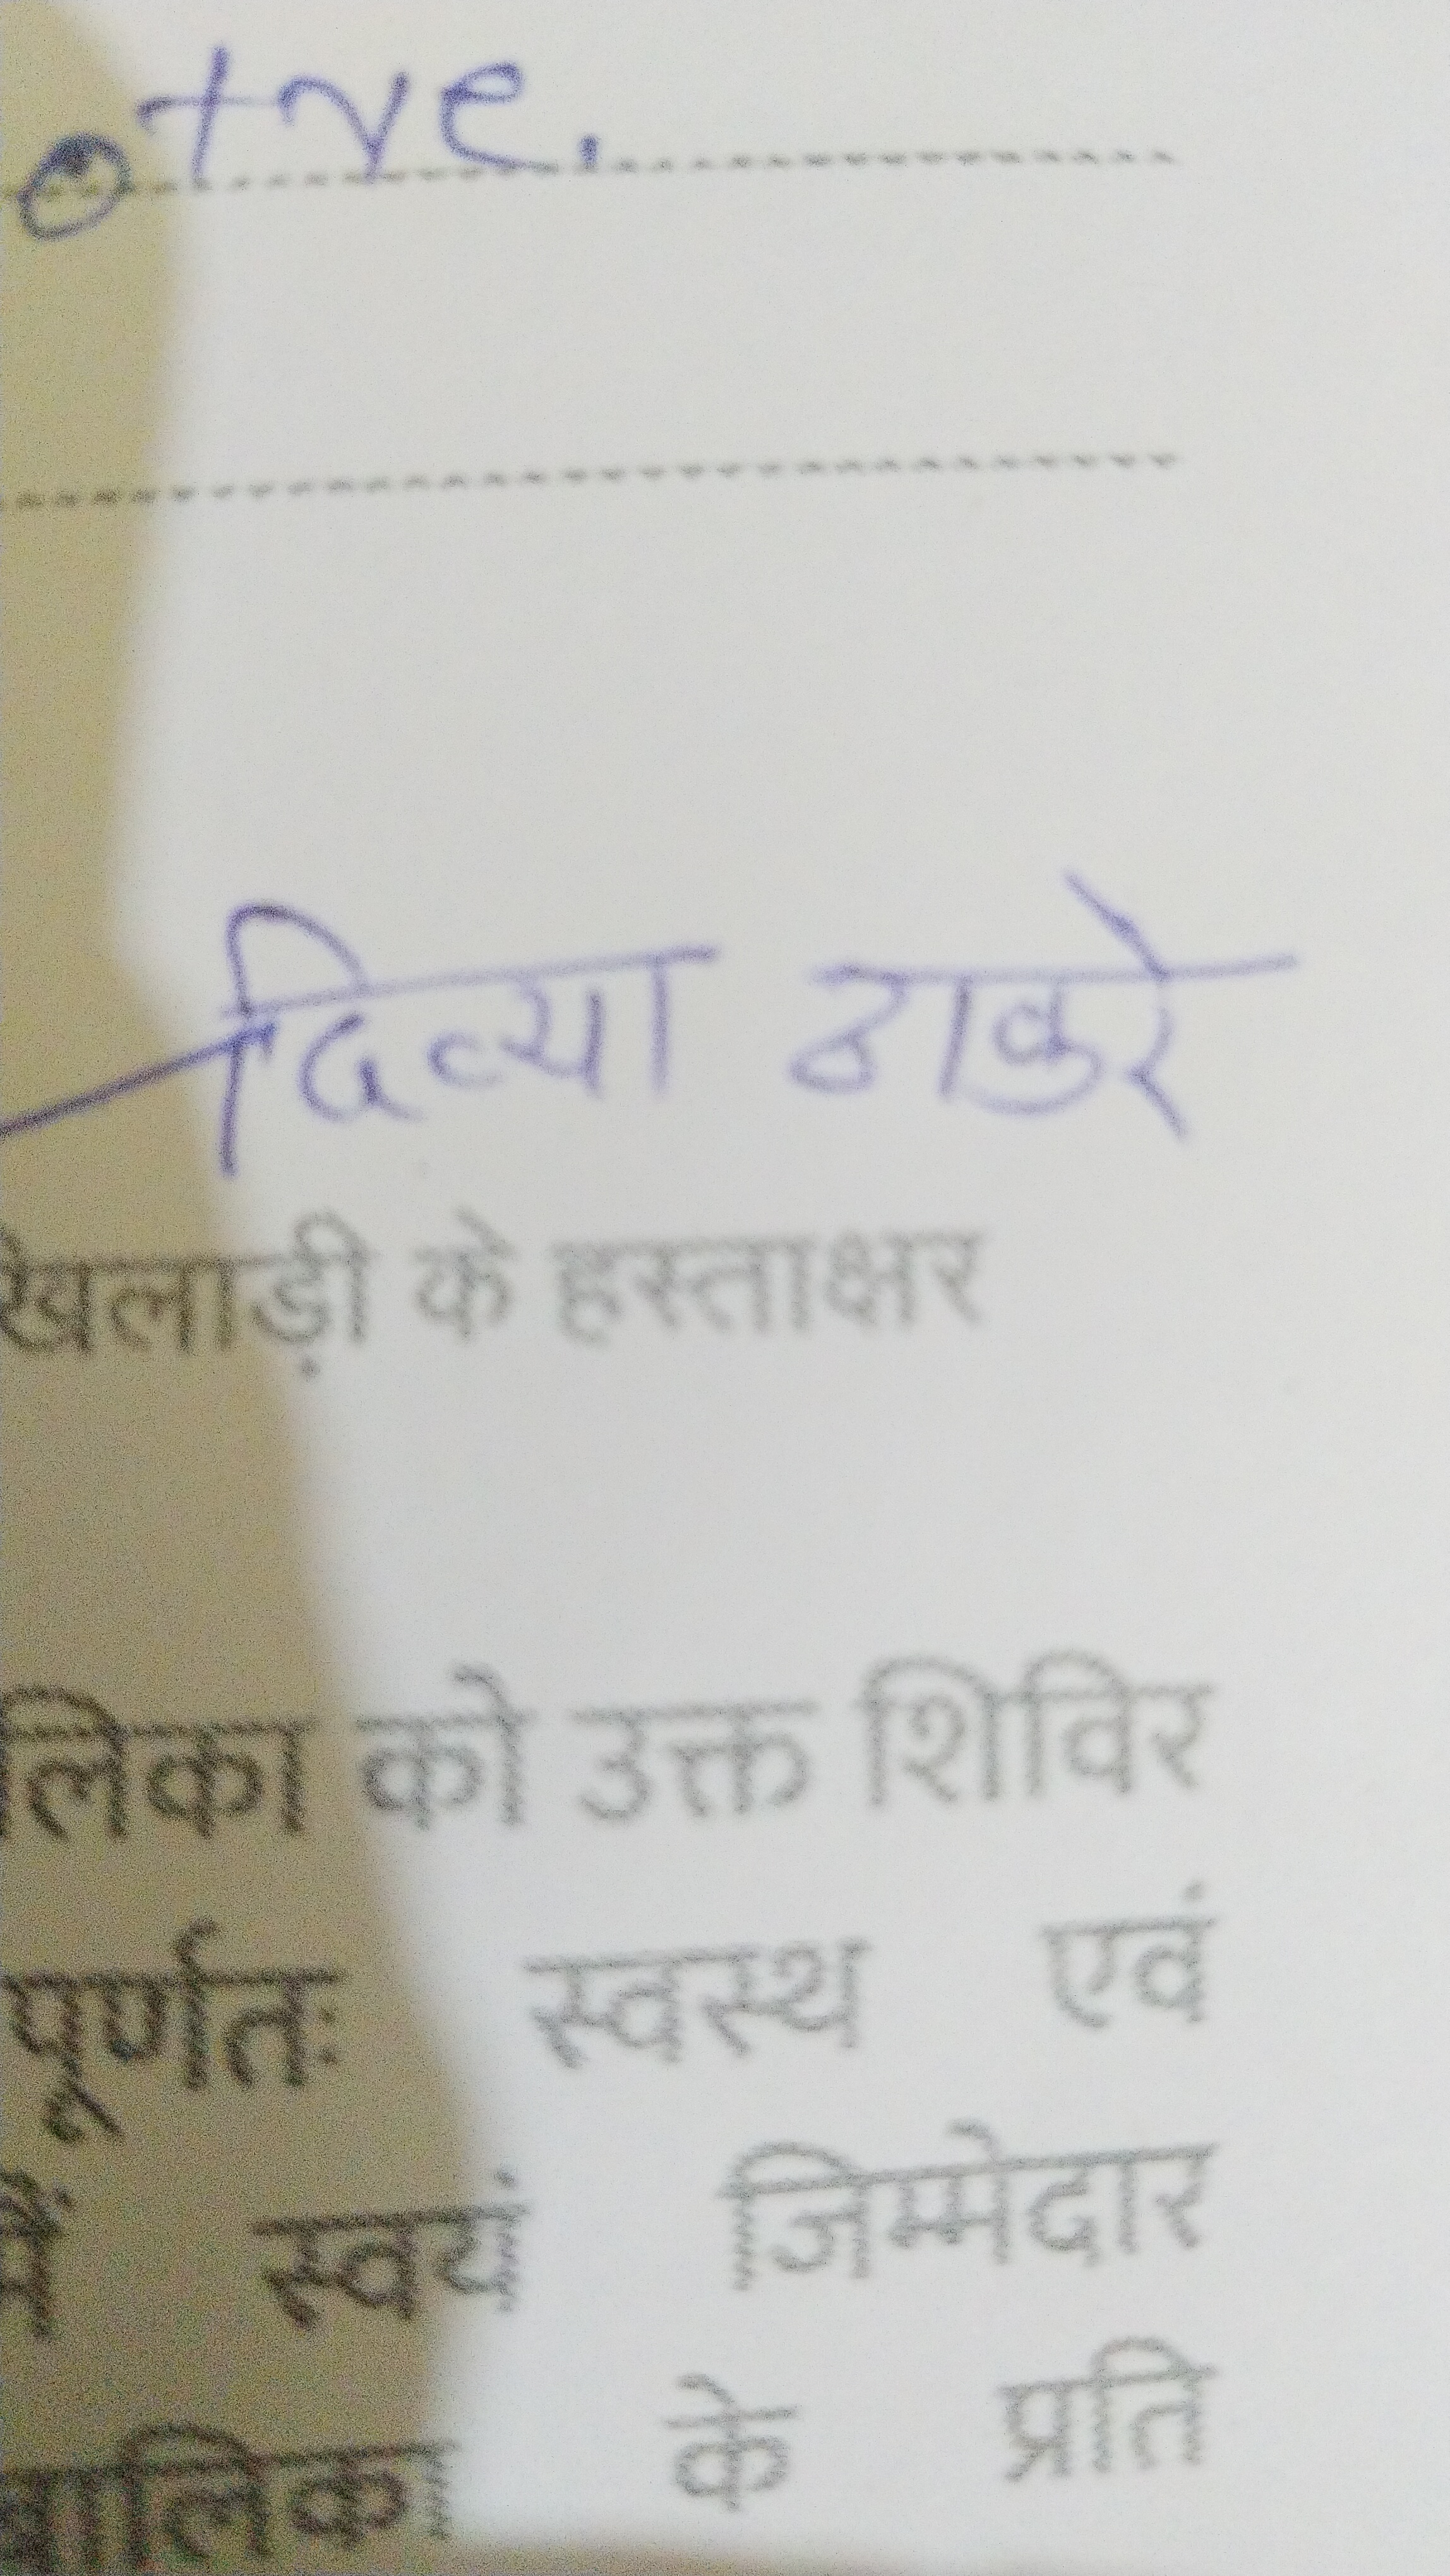 o+ve.
दिव्या ठाकुरे
खेलाड़ी के हस्ताक्षर
लिका को उक्त शिविर
पूर्णतः स्वस्थ एवं
में स्वयं जिम्मेदार
बालिका के प्रति